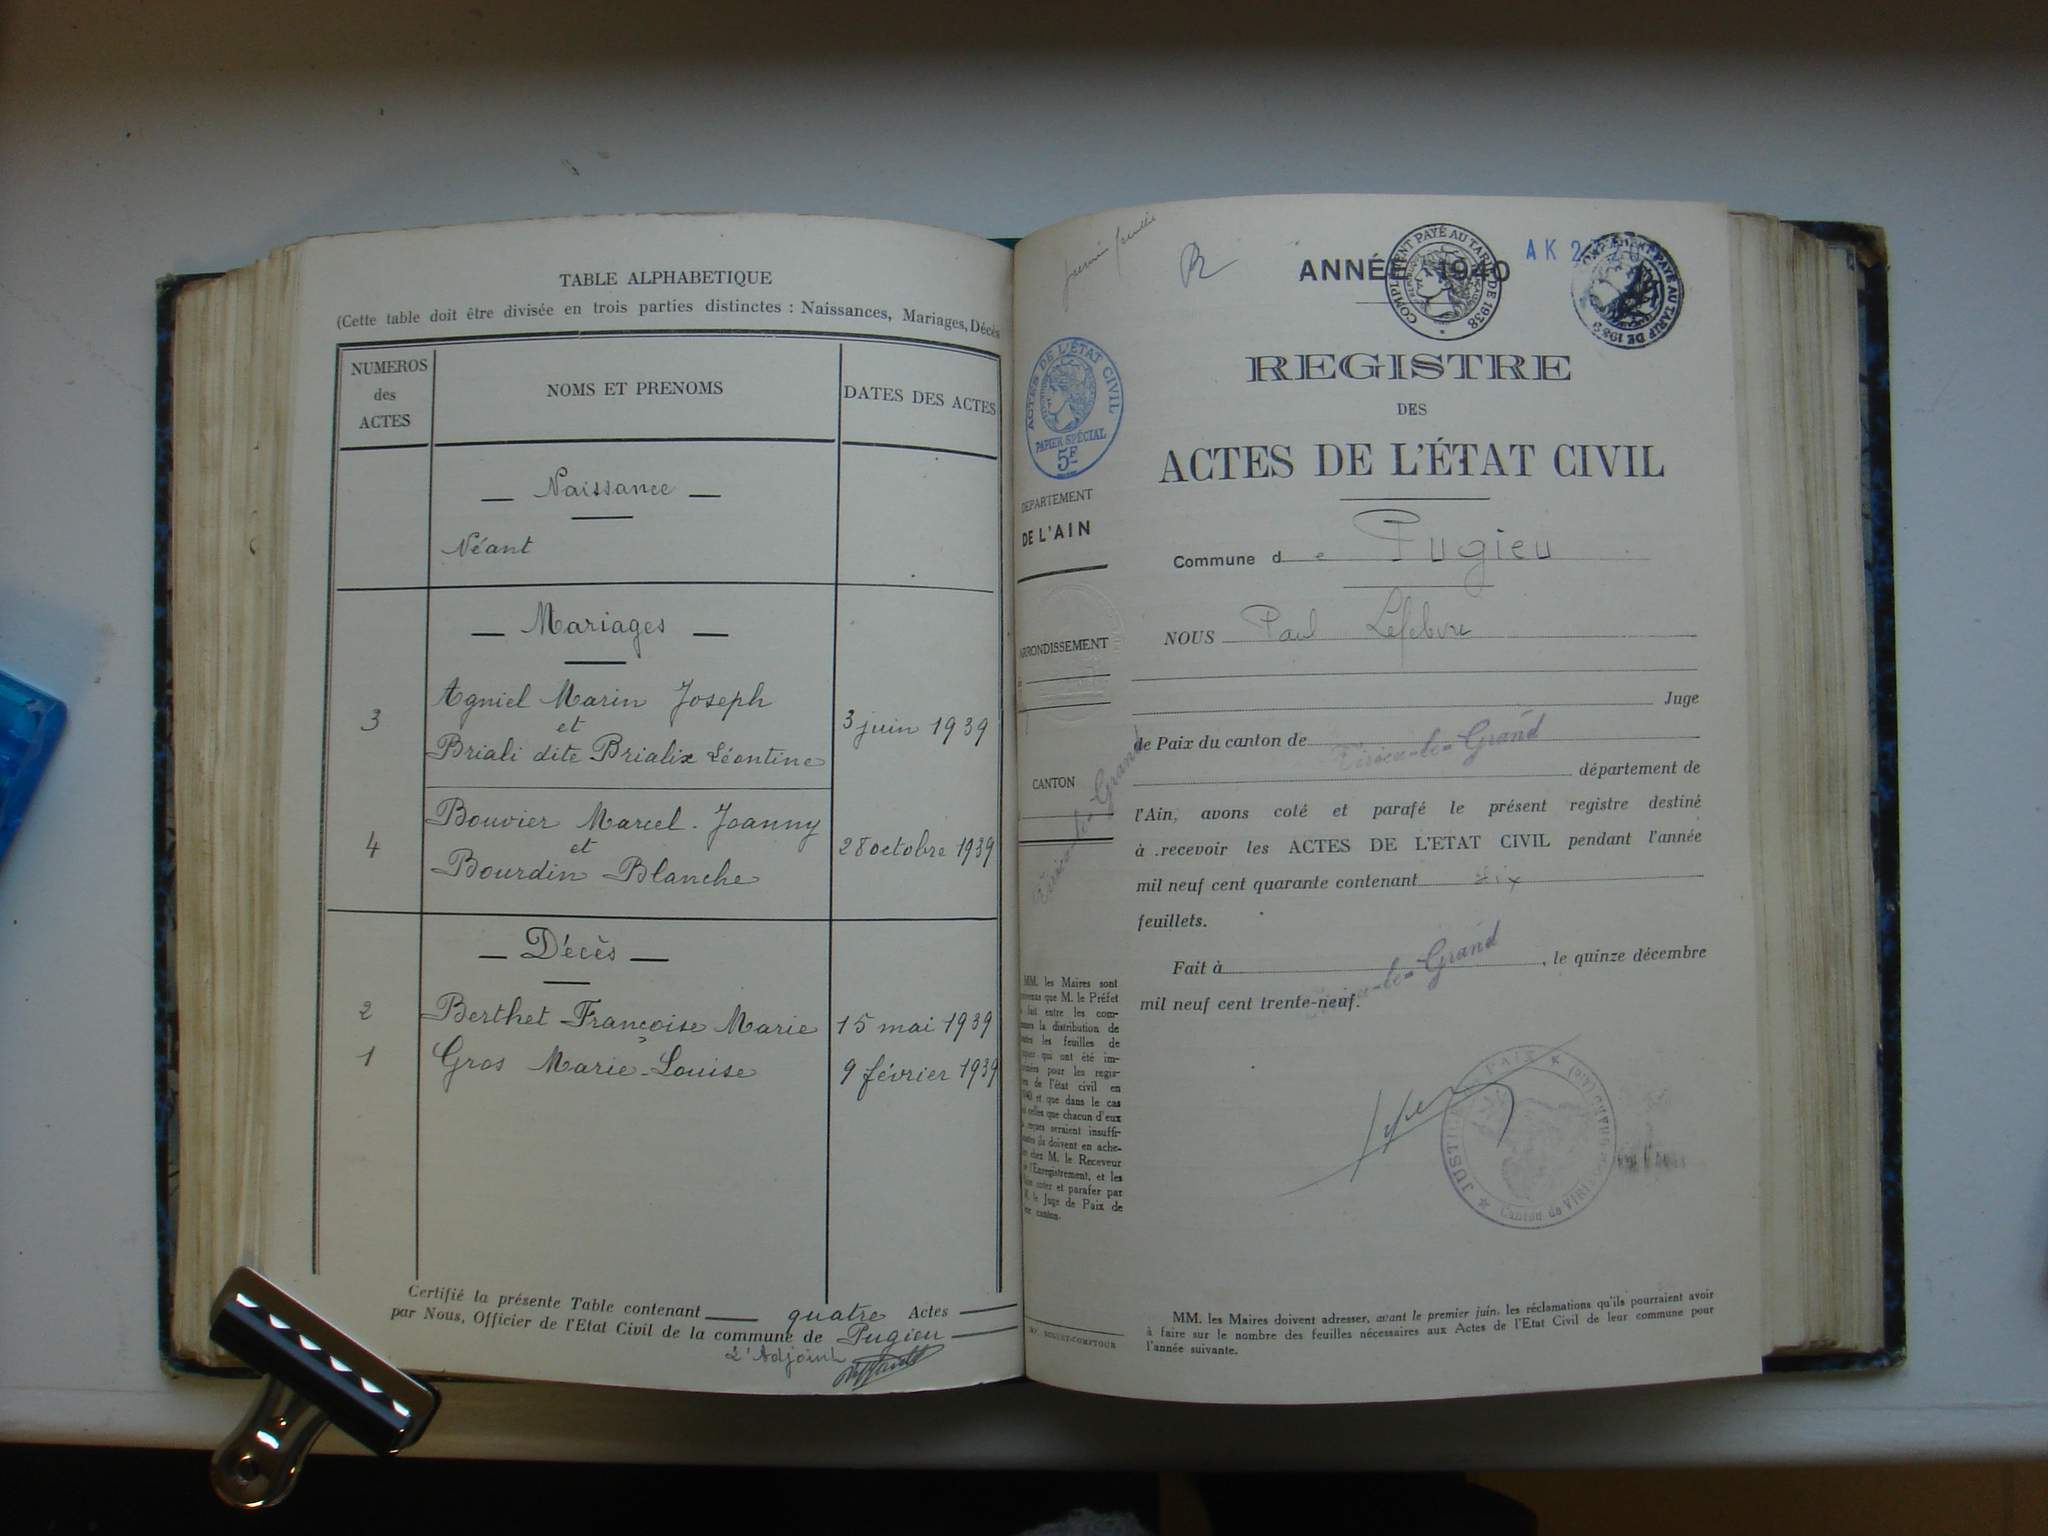 TABLE ALPHABETIQUE
(Cette table doit être divisée en trois parties distinctes : Naissances, Mariages, Décès
NUMEROS
des
ACTES
NOMS ET PRENOMS
DATES DES ACTES
— Naissance —
Néant
— Mariages —
Agniel Marin Joseph
3 et 3 juin 1939
Briali dite Brialix Léontine
Bouvier Marcel-Joanny
4 et 28 octobre 1939
Bourdin Blanche
— Décès —
2 Berthet Françoise Marie 15 mai 1939
1 Gros Marie-Louise 9 février 1939
Certifié la présente Table contenant quatre Actes
par Nous, Officier de l'Etat Civil de la commune de Pugieu
L'Adjoint
ANNÉE 1940
COMPLÉMENT PAYÉ AU TARIF DE 1938
AK
REGISTRE
DES
ACTES DE L'ÉTAT CIVIL
ACTES DE L'ÉTAT CIVIL
PAPIER SPÉCIAL
5F
DEPARTEMENT
DE L'AIN
ARRONDISSEMENT
CANTON
Virieu-le-Grand
Commune de Pugieu
NOUS Paul Lefebvre
Juge
de Paix du canton de Virieu-le-Grand
département de
l'Ain, avons coté et parafé le présent registre destiné
à recevoir les ACTES DE L'ETAT CIVIL pendant l'année
mil neuf cent quarante contenant
feuillets.
Fait à Virieu-le-Grand, le quinze décembre
mil neuf cent trente-neuf.
JUSTICE PAIX
Canton de VIRI GRAND (Ain)
MM. les Maires sont
que M. le Préfet
fait entre les com-
la distribution de
les feuilles de
qui ont été im-
pour les regis-
de l'état civil en
et que dans le cas
celles que chacun d'eux
reçues seraient insuffi-
ils doivent en ache-
chez M. le Receveur
l'Enregistrement, et les
coter et parafer par
le Juge de Paix de
canton.
MM. les Maires doivent adresser, avant le premier juin, les réclamations qu'ils pourraient avoir
à faire sur le nombre des feuilles nécessaires aux Actes de l'Etat Civil de leur commune pour
l'année suivante.